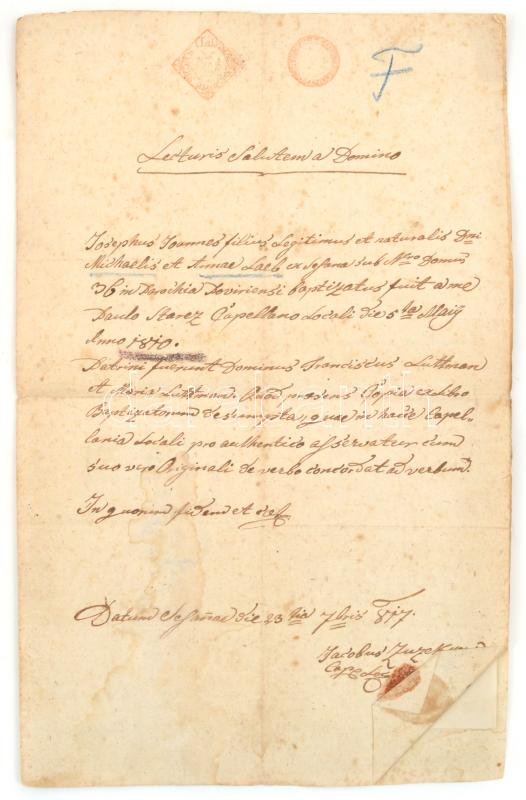 F
Lecturis Salutem a Domino
Josephus Joannes filius Legitimus et naturalis Dni
Michaelis et Annae Laeb ex Sesana sub Nro Domus
36 in Parochia Poviriensi baptizatus fuit a me
Paulo Starez Capellano Locali die 5ta Maij
Anno 1810.
Patrini fuerunt Dominus Franciscus Luttman
et Maria Luttman. Quod praesens Copia ex Libro
Baptizatorum desumpta, quae in hacce Capel-
lania Locali pro authentico asservatur cum
suo vero Originali de verbo concordat ad verbum.
In quorum fidem et
Datum Sesanae die 23tia 7bris 1817.
Jacobus
Cap Loc